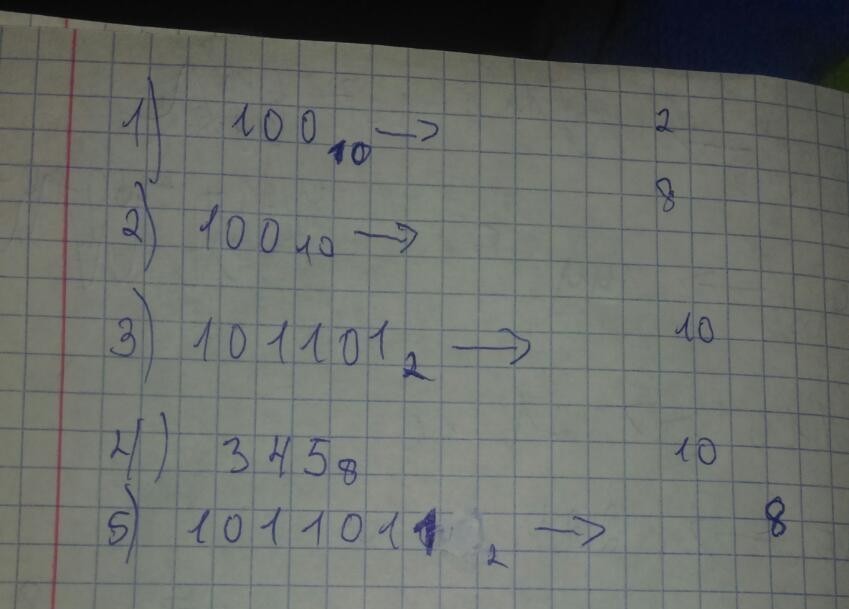 1) 100₁₀ → 2
2) 100₁₀ → 8
3) 101101₂ → 10
4) 345₈ 10
5) 1011011₂ → 8